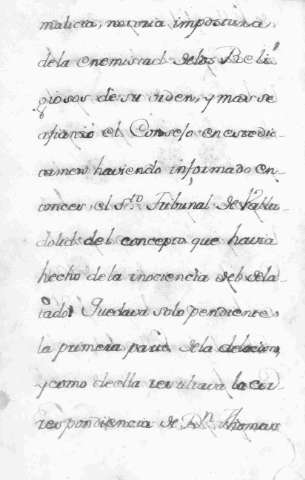 malicia, notoria impostura
de la enemistad de los Reli
giosos de su orden, y mas se
afianzó el Consejo en este dic
tamen haviendo informado en
tonces el Sto. Tribunal de Valla
dolid del concepto que havia
hecho de la inocencia del dela
tado. Quedava solo pendiente
la primera parte de la delacion,
y como de ella resultava la cor
respondencia de Dn. Thomas